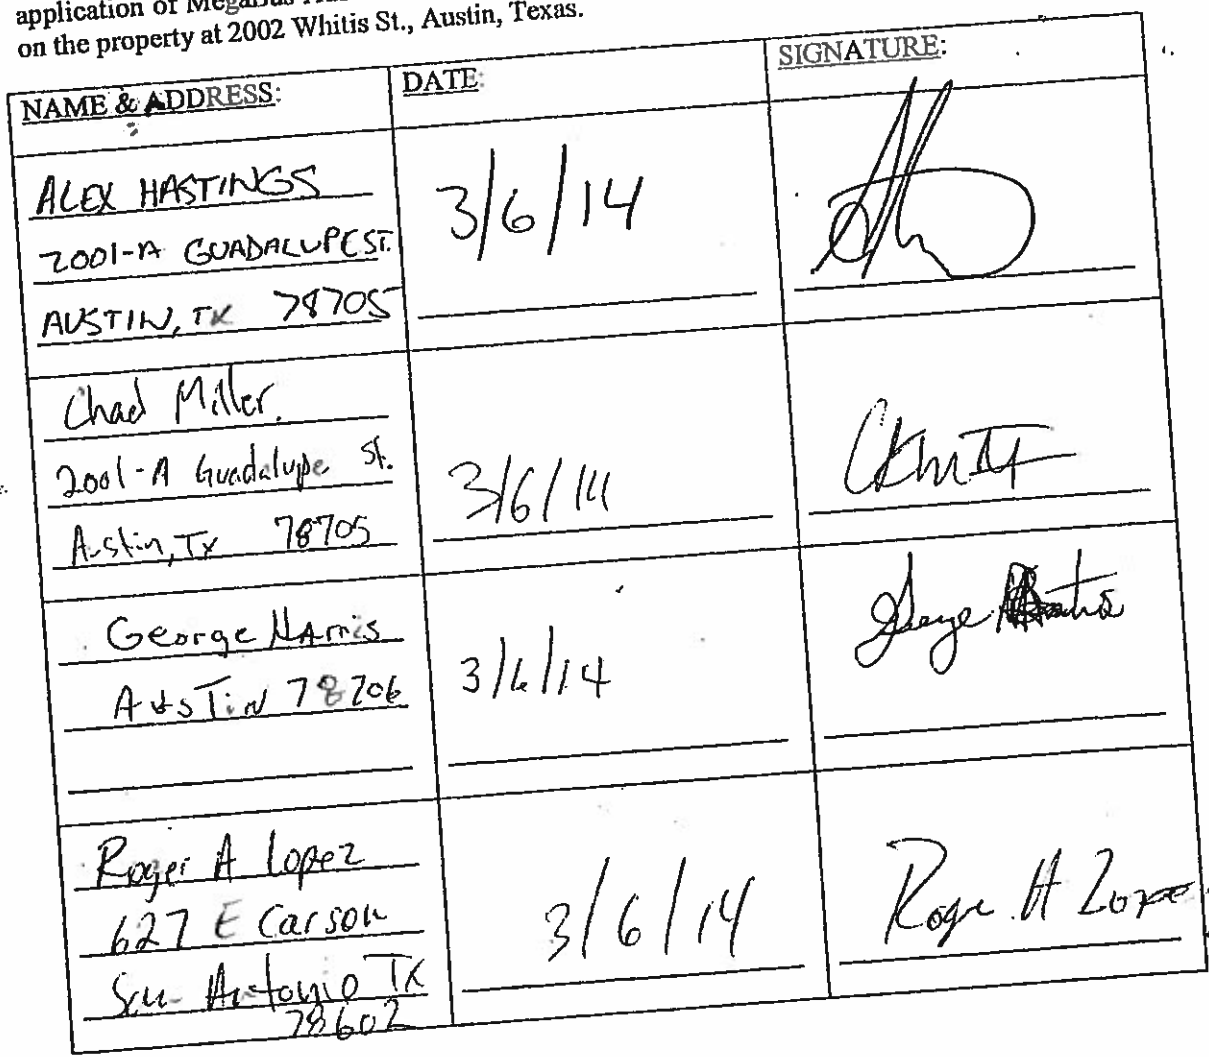 application of
on the property at 2002 Whitis St., Austin, Texas.
NAME & ADDRESS: DATE: SIGNATURE:
ALEX HASTINGS
2001-A GUADALUPE ST.
AUSTIN, TX 78705
3/6/14
Chad Miller.
2001-A Guadalupe St.
Austin, Tx 78705
3/6/14
George Harris
AusTin 78706
3/6/14
George
Roger A Lopez
627 E Carson
San Antonio TX
78602
3/6/14
Roger A Lopez